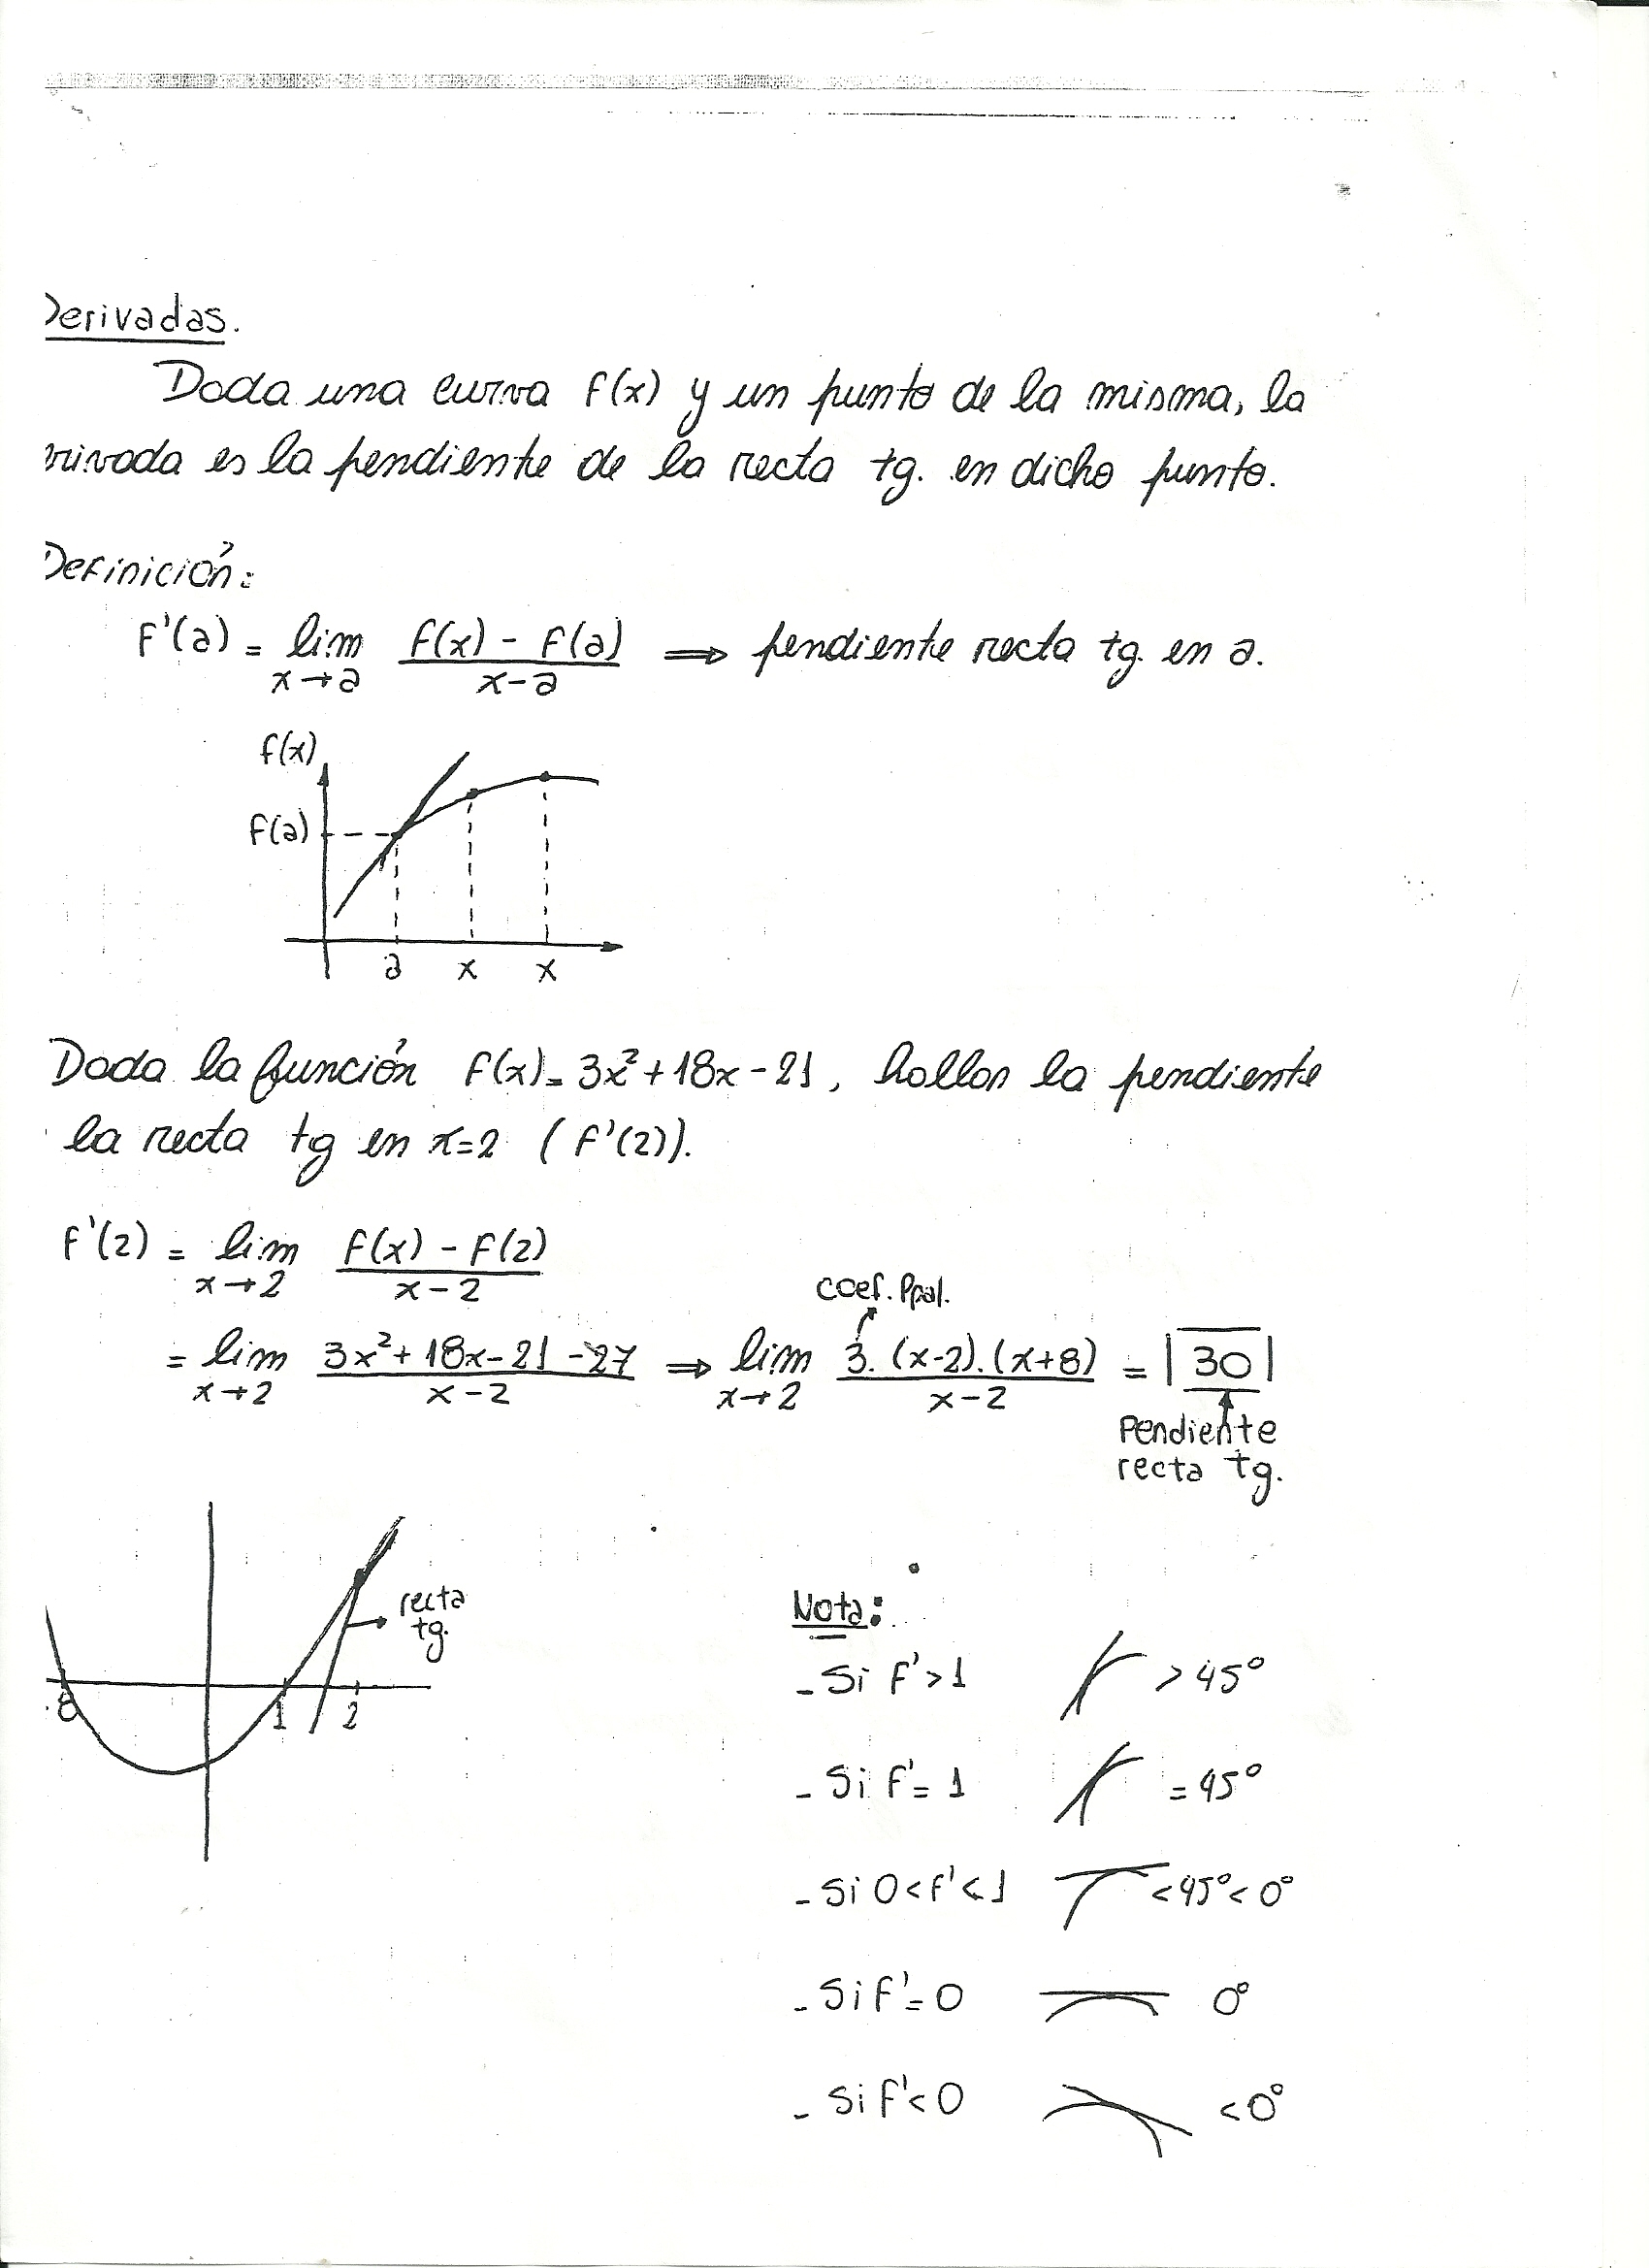 Derivadas.
Dada una curva f(x) y un punto de la misma, la
rivada es la pendiente de la recta tg. en dicho punto.
Definición:
F'(a) = lim x→a (f(x) - F(a))/(x-a) ⟹ pendiente recta tg. en a.
f(x)
F(a)
a x x
Dada la función f(x) = 3x²+18x-21, hallar la pendiente
la recta tg en x=2 (F'(2)).
F'(2) = lim x→2 (F(x) - F(2))/(x-2)
coef. Ppal.
= lim x→2 (3x²+18x-21-27)/(x-2) ⟹ lim x→2 (3.(x-2).(x+8))/(x-2) = |30|
Pendiente
recta tg.
recta
tg.
8 1 2
Nota:
- Si F'>1 >45°
- Si F'=1 =45°
- Si 0<f'<1 <45°<0°
- Si F'=0 0°
- Si F'<0 <0°